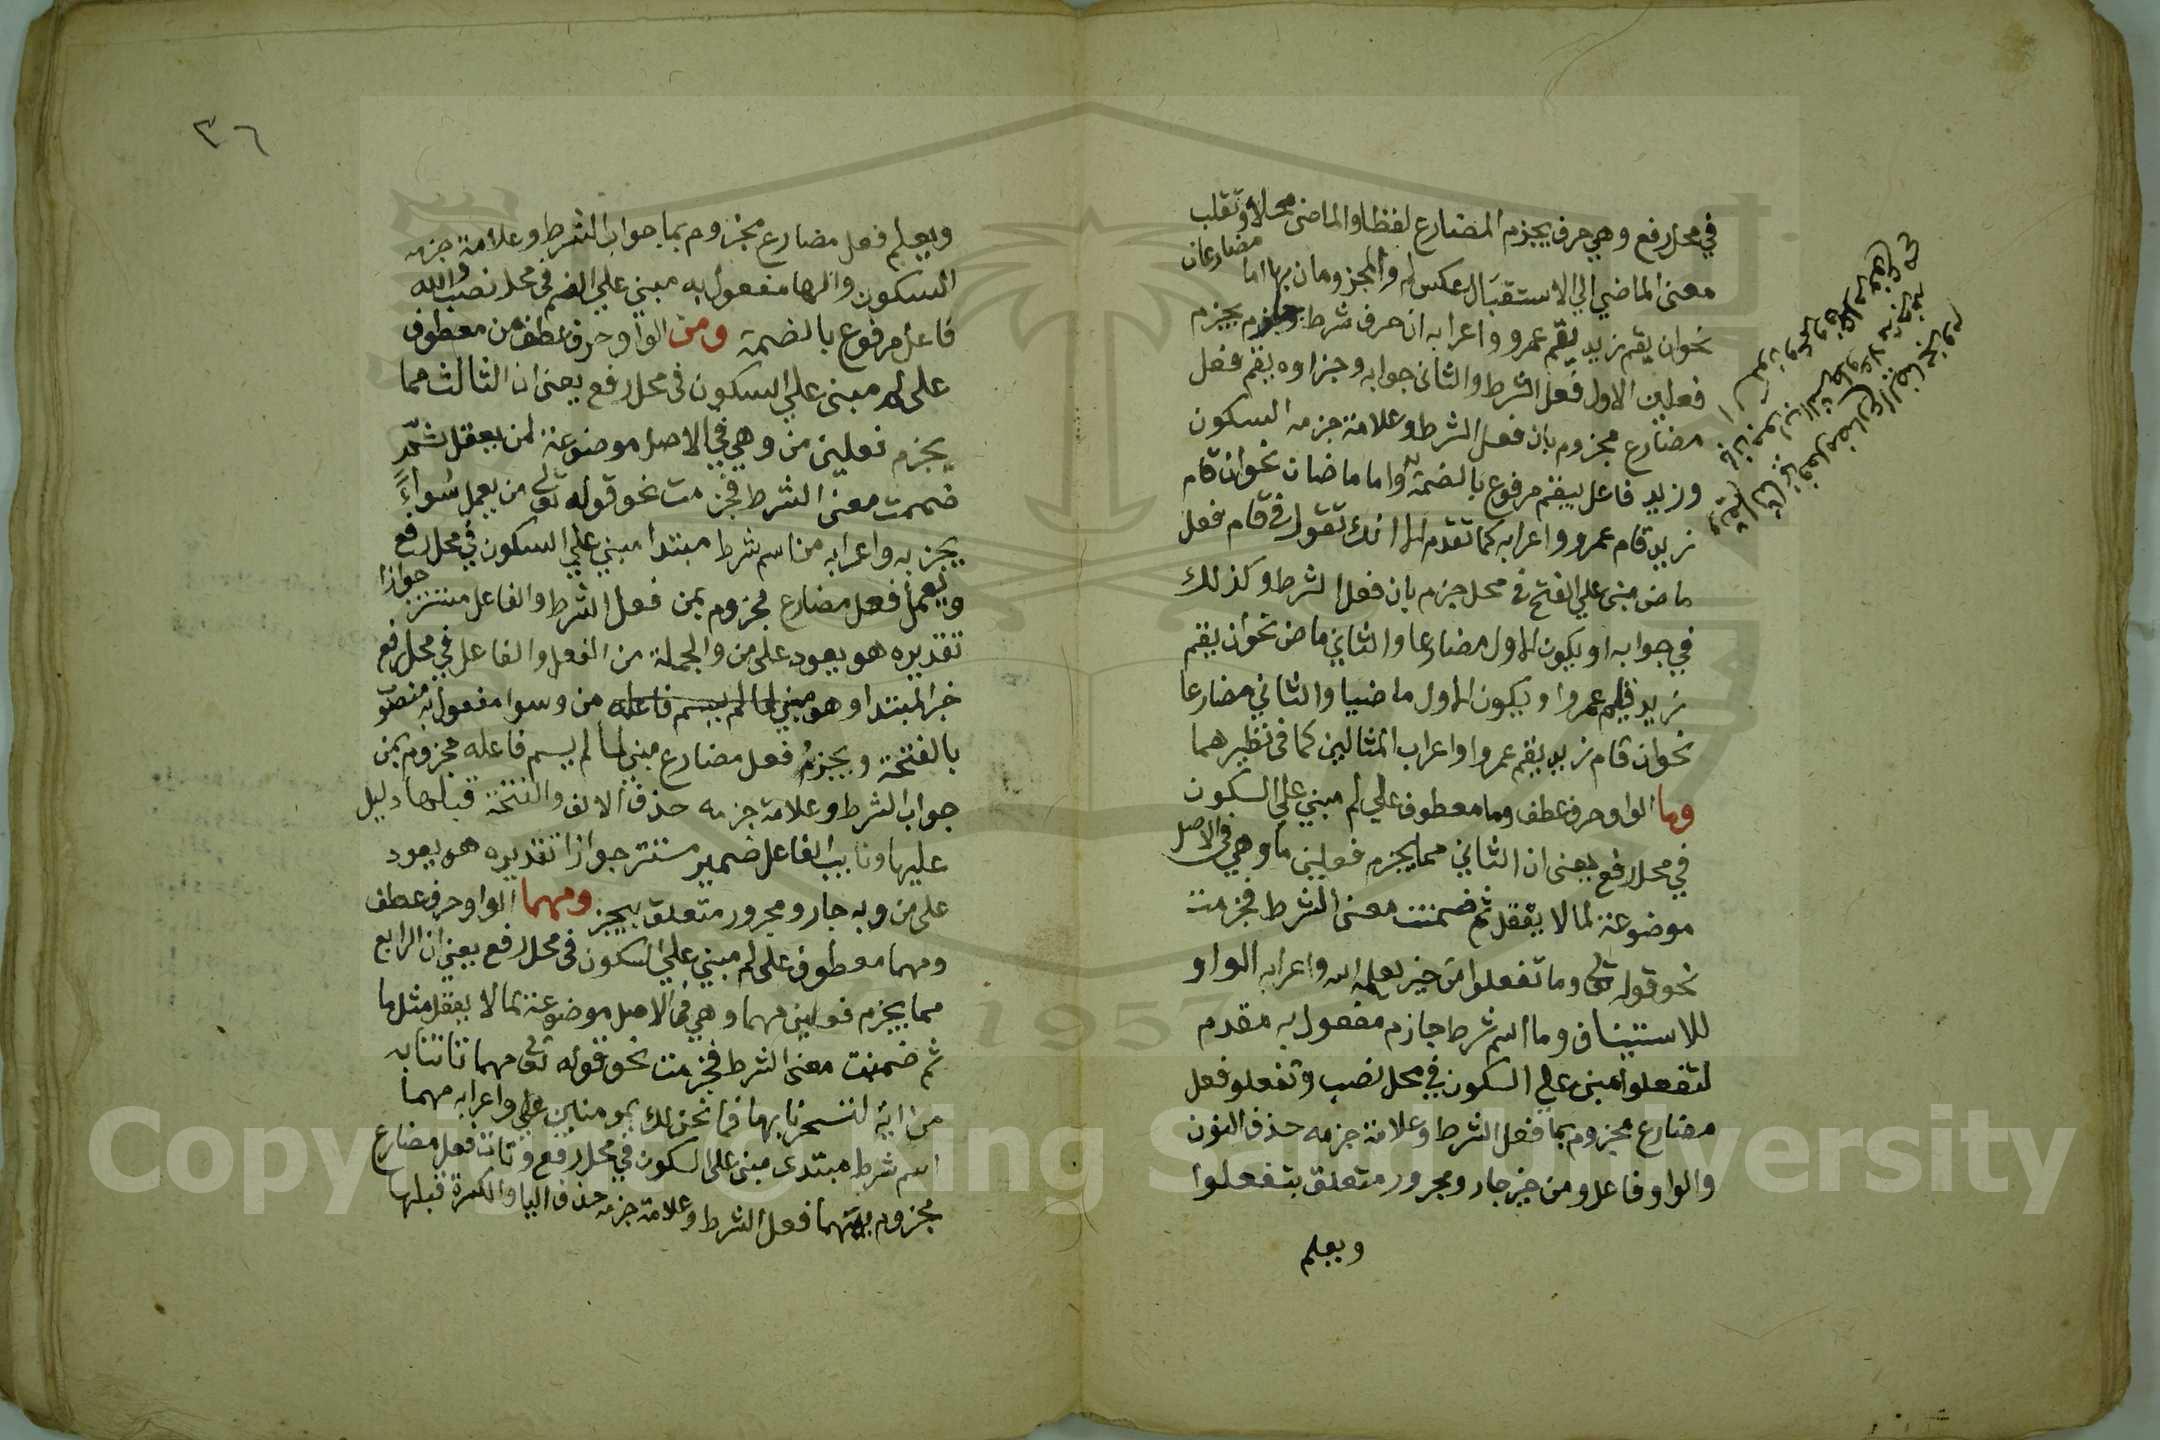 في محل رفع وهي حرف يجزم المضارع لفظا والماضى محلا وتقلب
معنى الماضي الي الاستقبال عكس لم والمجزومان بها اما مضارعان
نحو ان يقم زيد يقم عمرو واعرابه ان حرف شرط جازم يجزم
فعلين الاول فعل الشرط والثاني جوابه وجزاوه يقم فعل
مضارع مجزوم بان فعل الشرط وعلامة جزمه السكون
وزيد فاعل يقم مرفوع بالضمة واما ماضيان نحو ان قام
زيد قام عمرو واعرابه كما تقدم الا انك تقول في قام فعل
ماض مبنى علي الفتح في محل جزم بان فعل الشرط وكذلك
في جوابه او يكون الاول مضارعا والثاني ماض نحو ان يقم
زيد قام عمروا ويكون الاول ماضيا والثاني مضارعا
نحو ان قام زيد يقم عمروا واعراب المثالين كما في نظيرهما
وما الواو حرف عطف وما معطوف علي لم مبني علي السكون
في محل رفع يعنى ان الثاني مما يجزم فعلين ما وهي في الاصل
موضوعة لما لا يعقل ثم ضمنت معنى الشرط فجزمت
نحو قوله تعالى وما تفعلوا من خير يعلمه الله واعرابه الواو
للاستيناف وما اسم شرط جازم مفعول به مقدم
لتفعلوا مبنى علي السكون في محل نصب وتفعلو فعل
مضارع مجزوم بما فعل الشرط وعلامة جزمه حذف النون
والواو فاعل ومن خير جار ومجرور متعلق بتفعلوا
ويعلم
٣٦
ويعلم فعل مضارع مجزوم بما جواب الشرط وعلامة جزمه
السكون والها مفعول به مبني علي الضم في محل نصب والله
فاعل مرفوع بالضمة ومن الواو حرف عطف من معطوف
على لم مبنى علي السكون في محل رفع يعنى ان الثالث مما
يجزم فعلين من وهي في الاصل موضوعة لمن يعقل ثم
ضمنت معنى الشرط فجزمت نحو قوله تعالى من يعمل سواءً
يجز به واعرابه من اسم شرط مبتدا مبني علي السكون في محل رفع
ويعمل فعل مضارع مجزوم بمن فعل الشرط والفاعل مستتر جوازا
تقديره هو يعود على من والجملة من الفعل والفاعل في محل رفع
خبر المبتدا وهو مبني لما لم يسم فاعله من وسوا مفعول به منصوب
بالفتحة ويجز فعل مضارع مبني لما لم يسم فاعله مجزوم بمن
جواب الشرط وعلامة جزمه حذف الالف والفتحة قبلها دليل
عليها ونايب الفاعل ضمير مستتر جوازا تقديره هو يعود
على من وبه جار ومجرور متعلق بيجز ومهما الواو حرف عطف
ومهما معطوف على لم مبني علي السكون في محل رفع يعني ان الرابع
مما يجزم فعلين مهما وهي في الاصل موضوعة لما لا يعقل مثل ما
ثم ضمنت معنى الشرط فجزمت نحو قوله تعالى مهما تاتنا به
من اية لتسحرنا بها فما نحن لك بمومنين واعرابه مهما
اسم شرط مبتدى مبنى على السكون في محل رفع وتاتنا فعل مضارع
مجزوم بمهما فعل الشرط وعلامة جزمه حذف اليا والكسرة قبلها